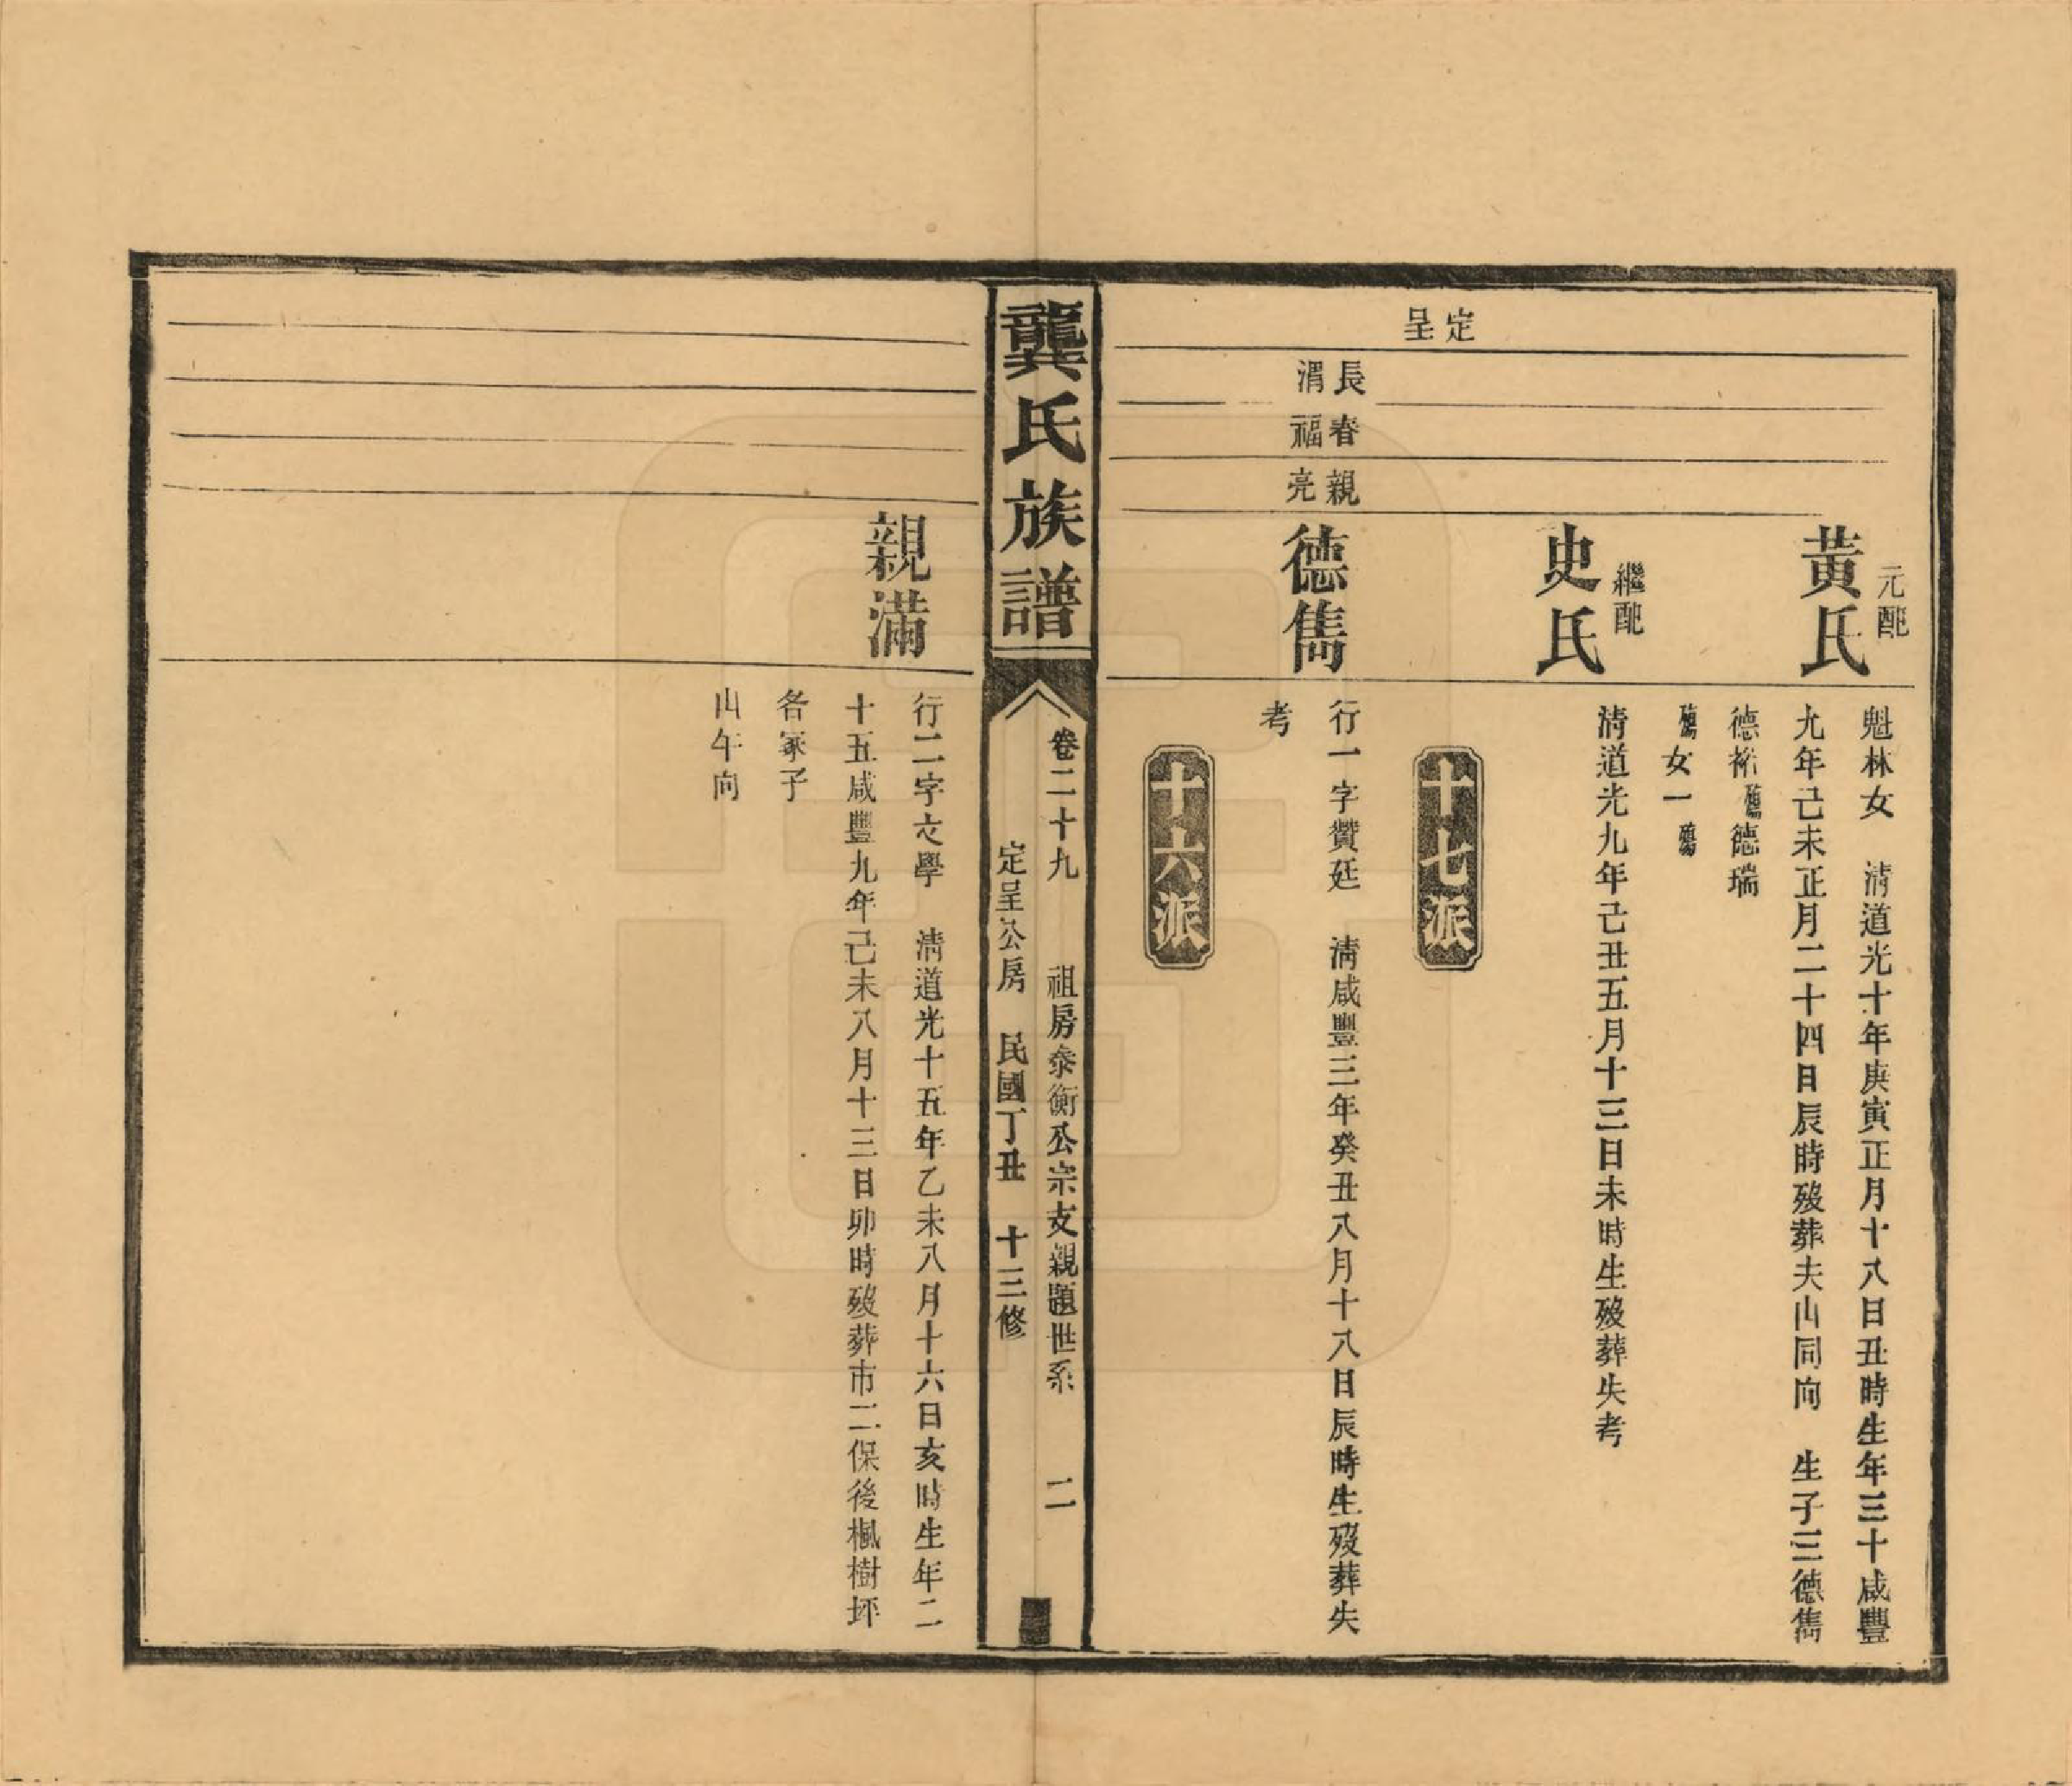 定呈
長渭
春福
親亮
元配
黃氏
魁林女　清道光十年庚寅正月十八日丑時生年三十咸豐
九年己未正月二十四日辰時歿葬夫山同向　生子三德雋
德裕殤德瑞
殤女一殤
繼配
史氏
清道光九年己丑五月十三日未時生歿葬失考
十七派
德雋
行一字贊廷　清咸豐三年癸丑八月十八日辰時生歿葬失
考
十六派
龔氏族譜
卷二十九　祖房泰衡公宗支親題世系　二
定呈公房　民國丁丑　十三修
親滿
行二字文學　清道光十五年乙未八月十六日亥時生年二
十五咸豐九年己未八月十三日卯時歿葬市二保後楓樹坪
各冢子
山午向